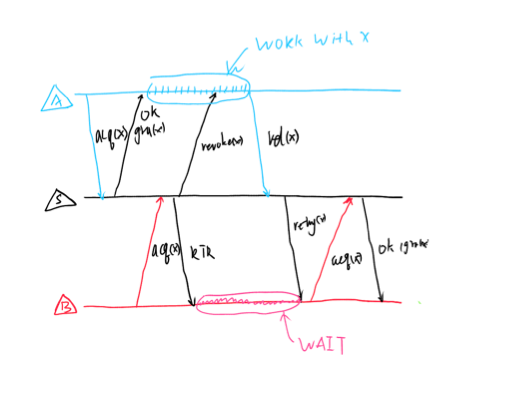 WORK WITH X
A
acq(x)
OK
gra(x)
revoke(x)
rel(x)
S
acq(x)
RTR
retry(x)
acq(x)
OK
B
WAIT